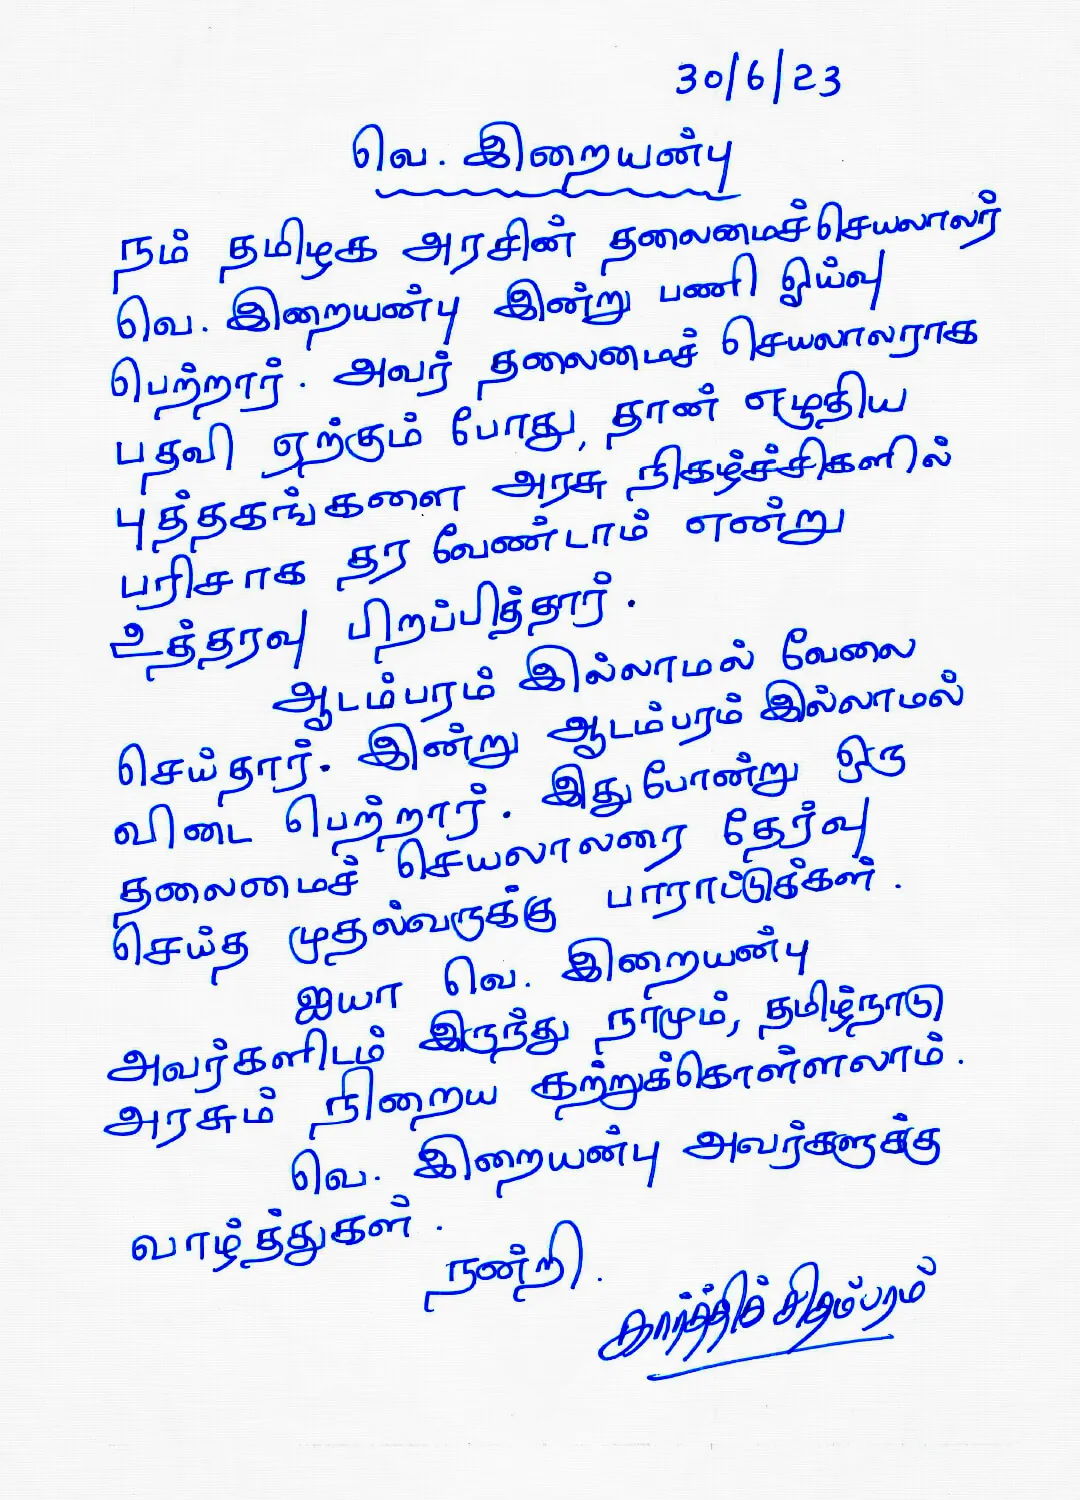 30/6/23
வெ. இறையன்பு
நம் தமிழக அரசின் தலைமைச்செயலாலர்
வெ. இறையன்பு இன்று பணி ஓய்வு
பெற்றார். அவர் தலைமைச் செயலாலராக
பதவி ஏற்கும் போது, தான் எழுதிய
புத்தகங்களை அரசு நிகழ்ச்சிகளில்
பரிசாக தர வேண்டாம் என்று
உத்தரவு பிறப்பித்தார்.
ஆடம்பரம் இல்லாமல் வேலை
செய்தார். இன்று ஆடம்பரம் இல்லாமல்
விடை பெற்றார். இதுபோன்று ஒரு
தலைமைச் செயலாலரை தேர்வு
செய்த முதல்வருக்கு பாராட்டுக்கள்.
ஐயா வெ. இறையன்பு
அவர்களிடம் இருந்து நாமும், தமிழ்நாடு
அரசும் நிறைய கற்றுக்கொள்ளலாம்.
வெ. இறையன்பு அவர்களுக்கு
வாழ்த்துகள்.
நன்றி.
கார்த்திக் சிதம்பரம்